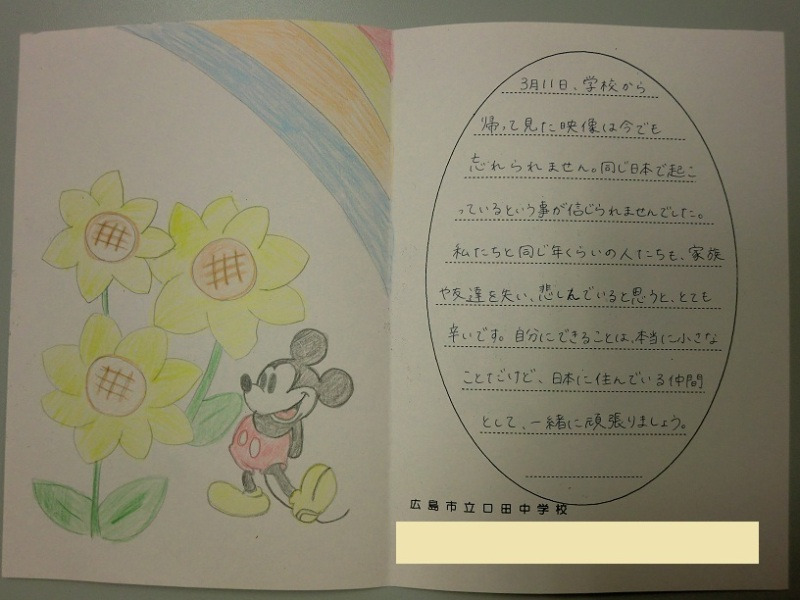 3月11日、学校から
帰って見た映像は今でも
忘れられません。同じ日本で起こ
っているという事が信じられませんでした。
私たちと同じ年くらいの人たちも、家族
や友達を失い、悲しんでいると思うと、とても
辛いです。自分にできることは、本当に小さな
ことだけど、日本に住んでいる仲間
として、一緒に頑張りましょう。
広島市立口田中学校